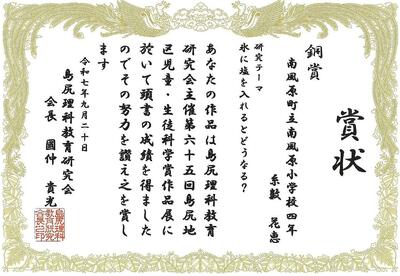 賞状
銅賞
南風原町立南風原小学校四年
糸数 花恵
研究テーマ
氷に塩を入れるとどうなる?
あなたの作品は島尻理科教育
研究会主催第六十五回島尻地
区児童・生徒科学賞作品展に
於いて頭書の成績を得ました
のでその努力を讃え之を賞し
ます
令和七年九月二十日
島尻理科教育研究会
会長 國仲 貴光